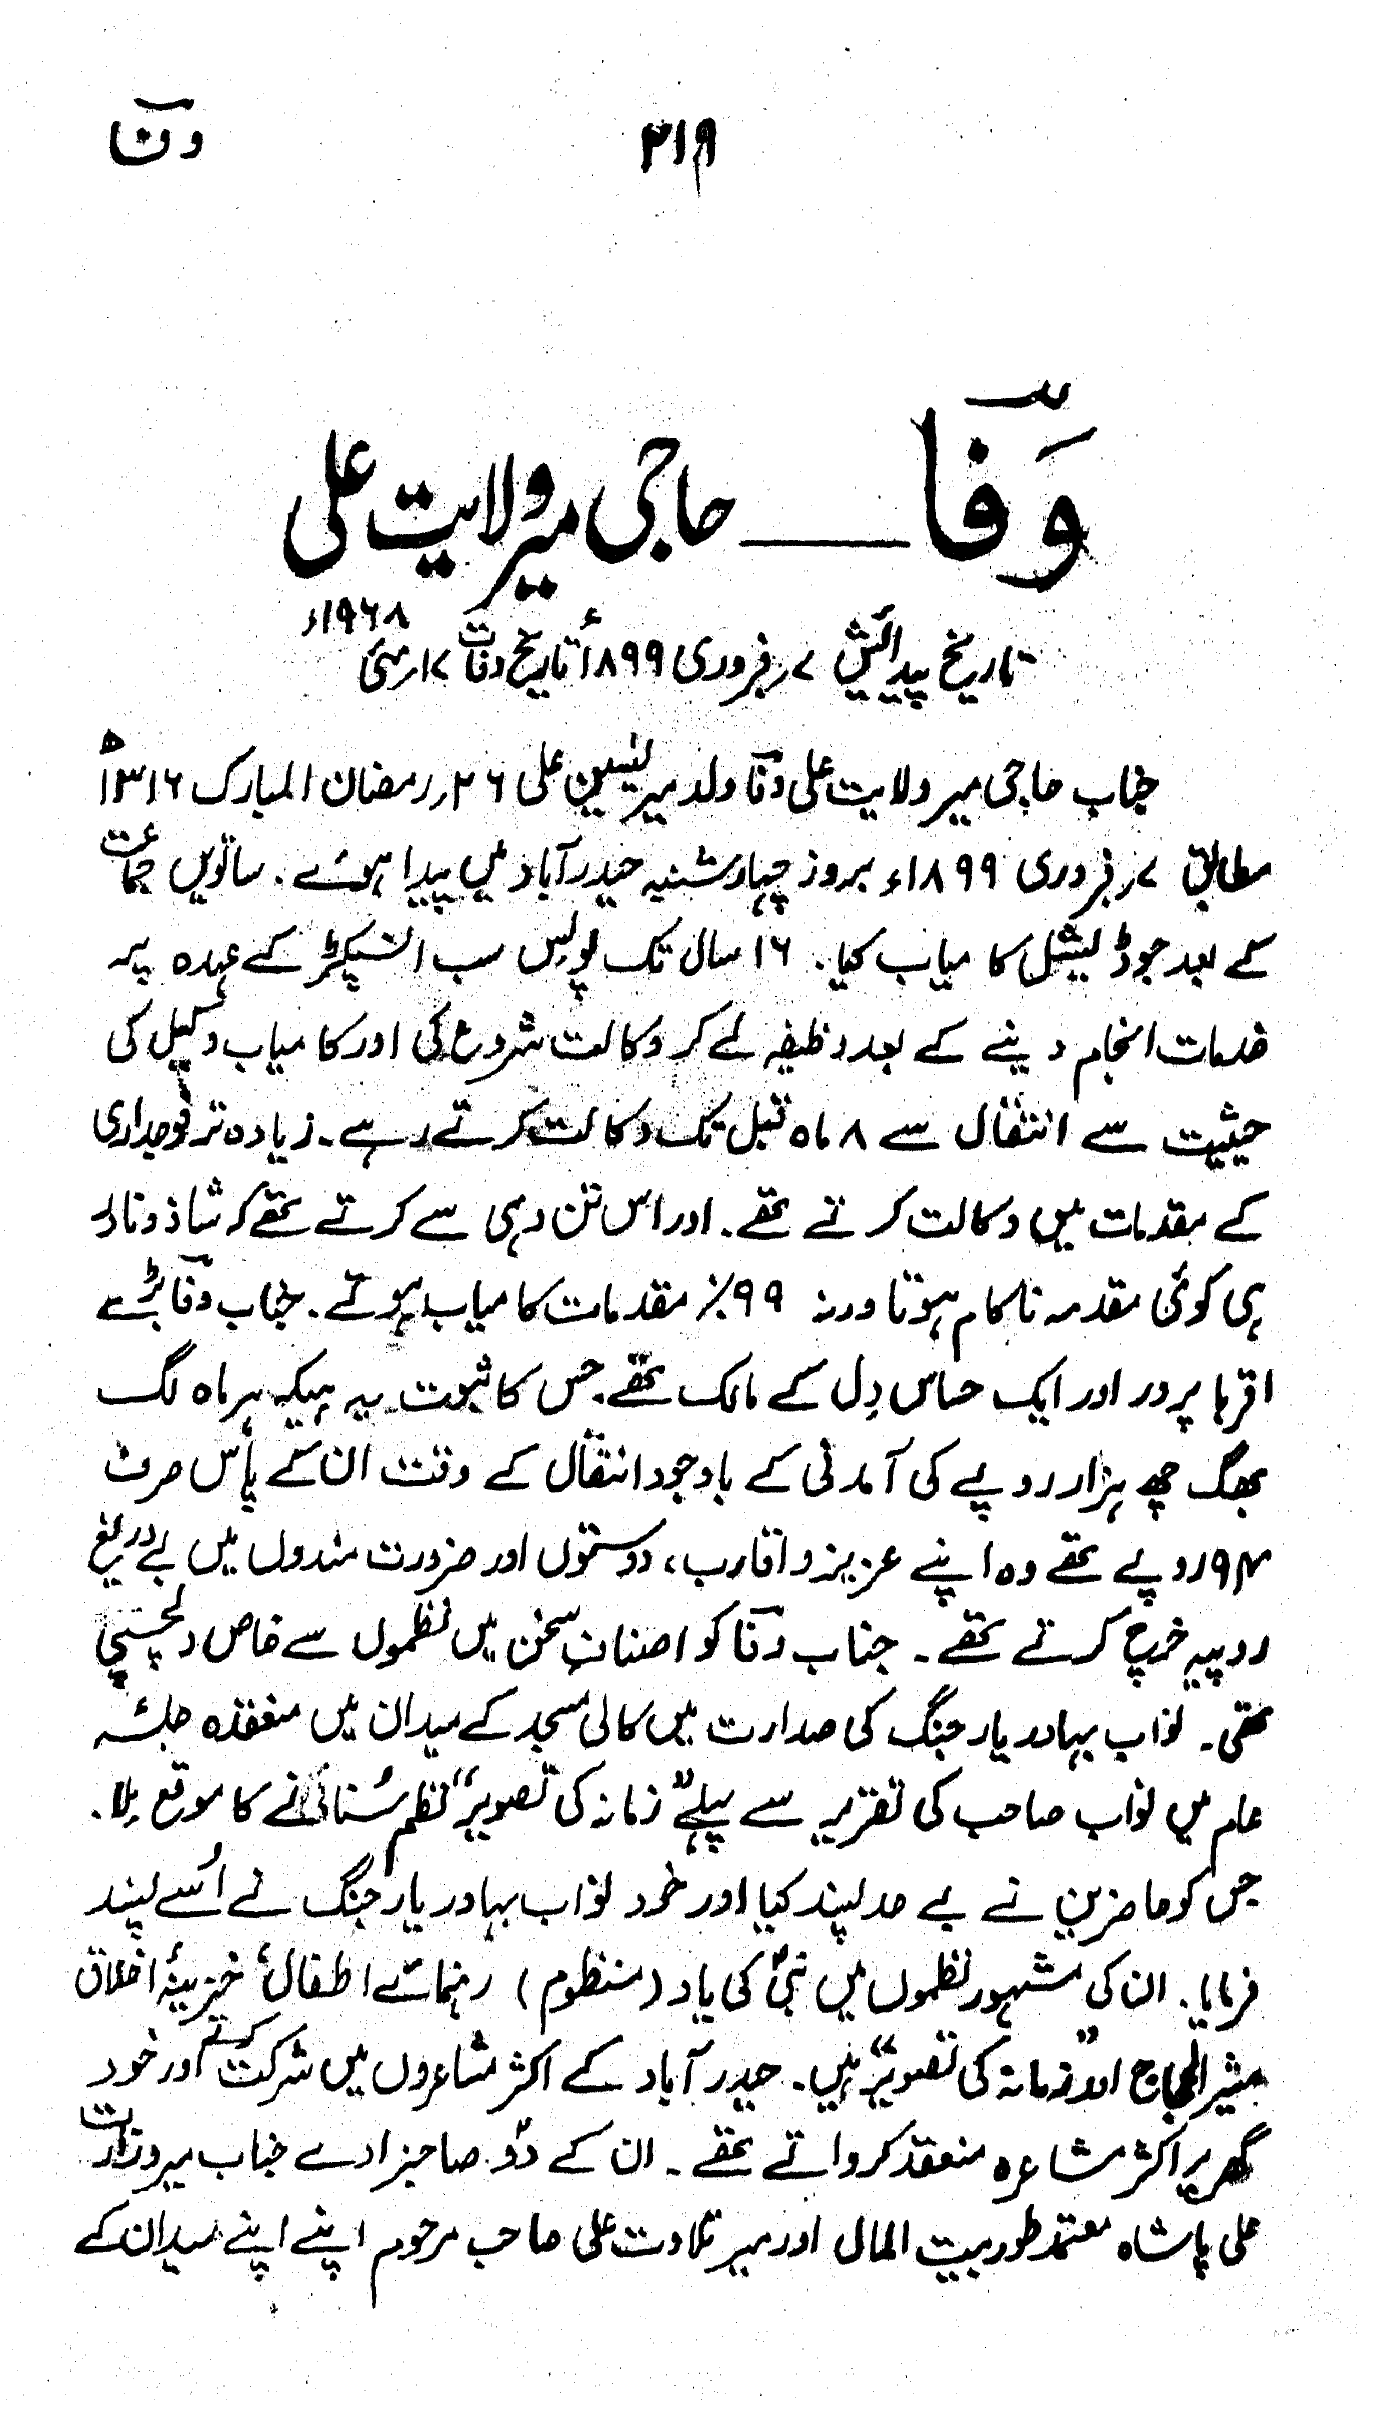 وفاؔ
۳۱۹
وَفاؔ ــــ حاجی میر ولایت علی
تاریخ پیدائش ۷؍فروری ۱۸۹۹ء تاریخ وفات ۱۷؍مئی ۱۹۶۸ء
جناب حاجی میر ولایت علی وفاؔ ولد میر یٰسین علی ۲۶؍رمضان المبارک ۱۳۱۶ھ
مطابق ۷؍فروری ۱۸۹۹ء بروز چہارشنبہ حیدرآباد میں پیدا ہوئے۔ ساتویں جماعت
کے بعد جوڈیشیل کامیاب کیا۔ ۱۶ سال تک پولیس سب انسپکٹر کے عہدہ پر
خدمات انجام دینے کے بعد وظیفہ لے کر وکالت شروع کی اور کامیاب وکیل کی
حیثیت سے انتقال سے ۸ ماہ قبل تک وکالت کرتے رہے۔ زیادہ تر فوجداری
کے مقدمات میں وکالت کرتے تھے۔ اور اس تن دہی سے کرتے تھے کہ شاذ و نادر
ہی کوئی مقدمہ ناکام ہوتا ورنہ ۹۹٪ مقدمات کامیاب ہوتے۔ جناب وفاؔ بڑے
اقربا پرور اور ایک حساس دِل کے مالک تھے۔ جس کا ثبوت یہ ہیکہ ہر ماہ لگ
بھگ چھ ہزار روپے کی آمدنی کے باوجود انتقال کے وقت ان کے پاس صرف
۹۴ روپے تھے وہ اپنے عزیز و اقارب، دوستوں اور ضرورت مندوں میں بے دریغ
روپیہ خرچ کرتے تھے۔ جناب وفاؔ کو اصنافِ سخن میں نظموں سے خاص دلچسپی
تھی۔ نواب بہادر یار جنگ کی صدارت میں کالی مسجد کے میدان میں منعقدہ جلسہ
عام میں نواب صاحب کی تقریر سے پہلے "زمانہ کی تصویر" نظم سُنانے کا موقع مِلا۔
جس کو حاضرین نے بے حد پسند کیا اور خود نواب بہادر یار جنگ نے اُسے پسند
فرمایا۔ ان کی مشہور نظموں میں نبیؐ کی یاد (منظوم) رہنمائے اطفال، خزینۂ اخلاق
مشیر الحجاج اور "زمانہ کی تصویر" ہیں۔ حیدرآباد کے اکثر مشاعروں میں شرکت کرتے اور خود
گھر پر اکثر مشاعرہ منعقد کرواتے تھے۔ ان کے دو صاحبزادے جناب میر وزارت
علی پاشاہ معتمد طور بیت المال اور میر تلاوت علی صاحب مرحوم اپنے اپنے میدان کے